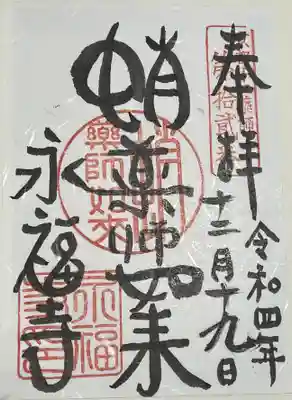 第拾貮番
奉拝
令和四年
十二月十九日
蛸薬師如来
藥師如来
永福寺
永福
寺印